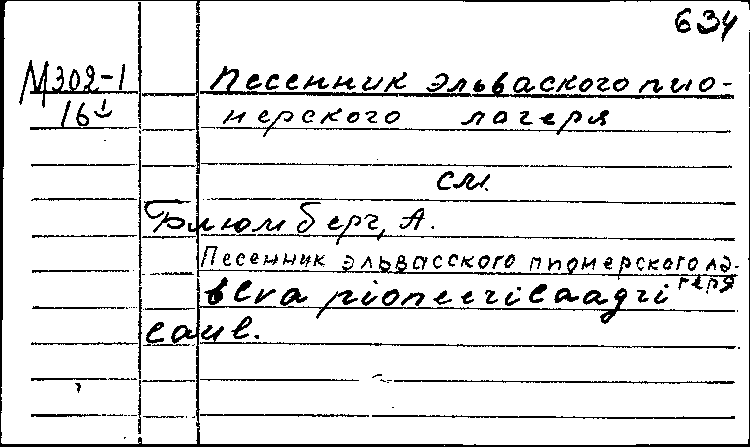 634
М302-1 Песенник эльваского пио-
16 нерского лагеря
см.
Блюмберг, А.
Песенник эльвасского пионерского ла-
геря
Elva pioneerilaagri
laul.